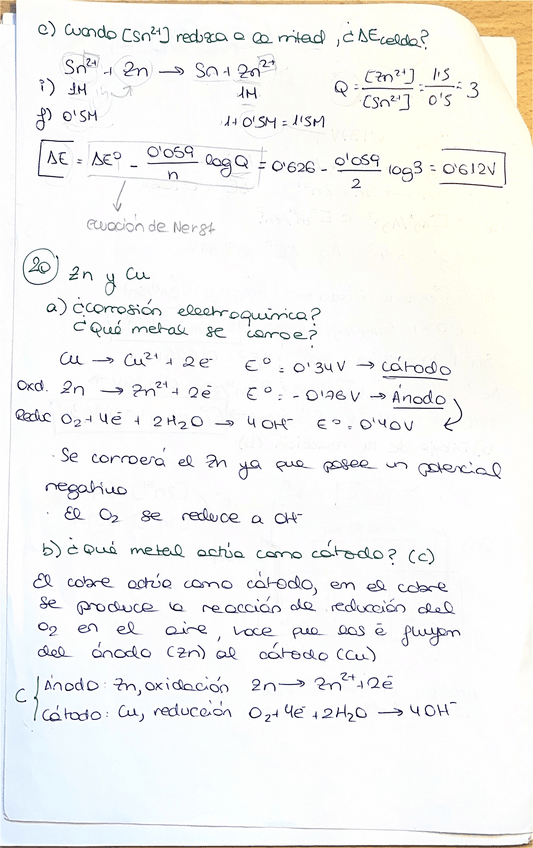 c) Cuando [Sn²⁺] reduzca a la mitad, ¿ΔEcelda?
Sn²⁺ + Zn → Sn + Zn²⁺
i) 1M 1M
f) 0'5M 1+0'5M = 1'5M
Q = [Zn²⁺]/[Sn²⁺] = 1'5/0'5 = 3
ΔE = ΔE⁰ - 0'059/n log Q = 0'626 - 0'059/2 log 3 = 0'612V
ecuación de Nerst
20 Zn y Cu
a) ¿corrosión electroquímica?
¿Qué metal se corroe?
Cu → Cu²⁺ + 2e⁻ E⁰ = 0'34V → cátodo
Oxd. Zn → Zn²⁺ + 2e⁻ E⁰ = -0'76V → Ánodo
Reduc O₂ + 4e⁻ + 2H₂O → 4OH⁻ E⁰ = 0'40V
· Se corroerá el Zn ya que posee un potencial
negativo
· El O₂ se reduce a OH⁻
b) ¿Qué metal actúa como cátodo? (c)
El cobre actúa como cátodo, en el cobre
se produce la reacción de reducción del
O₂ en el aire, hace que los e⁻ fluyan
del ánodo (Zn) al cátodo (Cu)
c { Ánodo: Zn, oxidación Zn → Zn²⁺ + 2e⁻
Cátodo: Cu, reducción O₂ + 4e⁻ + 2H₂O → 4OH⁻